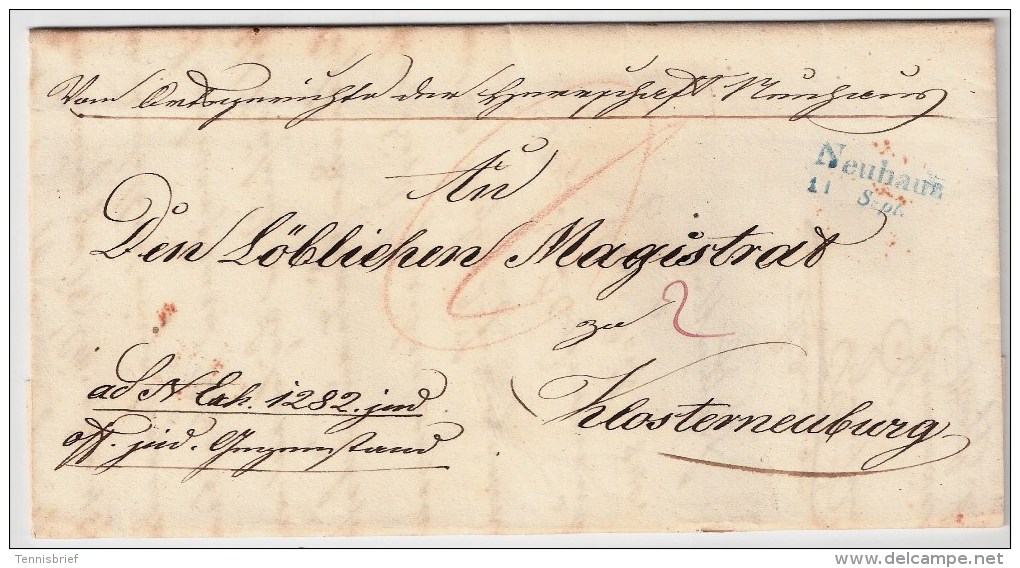 Vom Ortsgerichte der Herrschaft Neuhaus
An
Neuhaus
11 Sept.
Den Löblichen Magistrat
zu
2
Klosterneuburg
ad N Exh. 1282. jud
off. jud. Gegenstand
Tennisbrief
www.delcampe.net